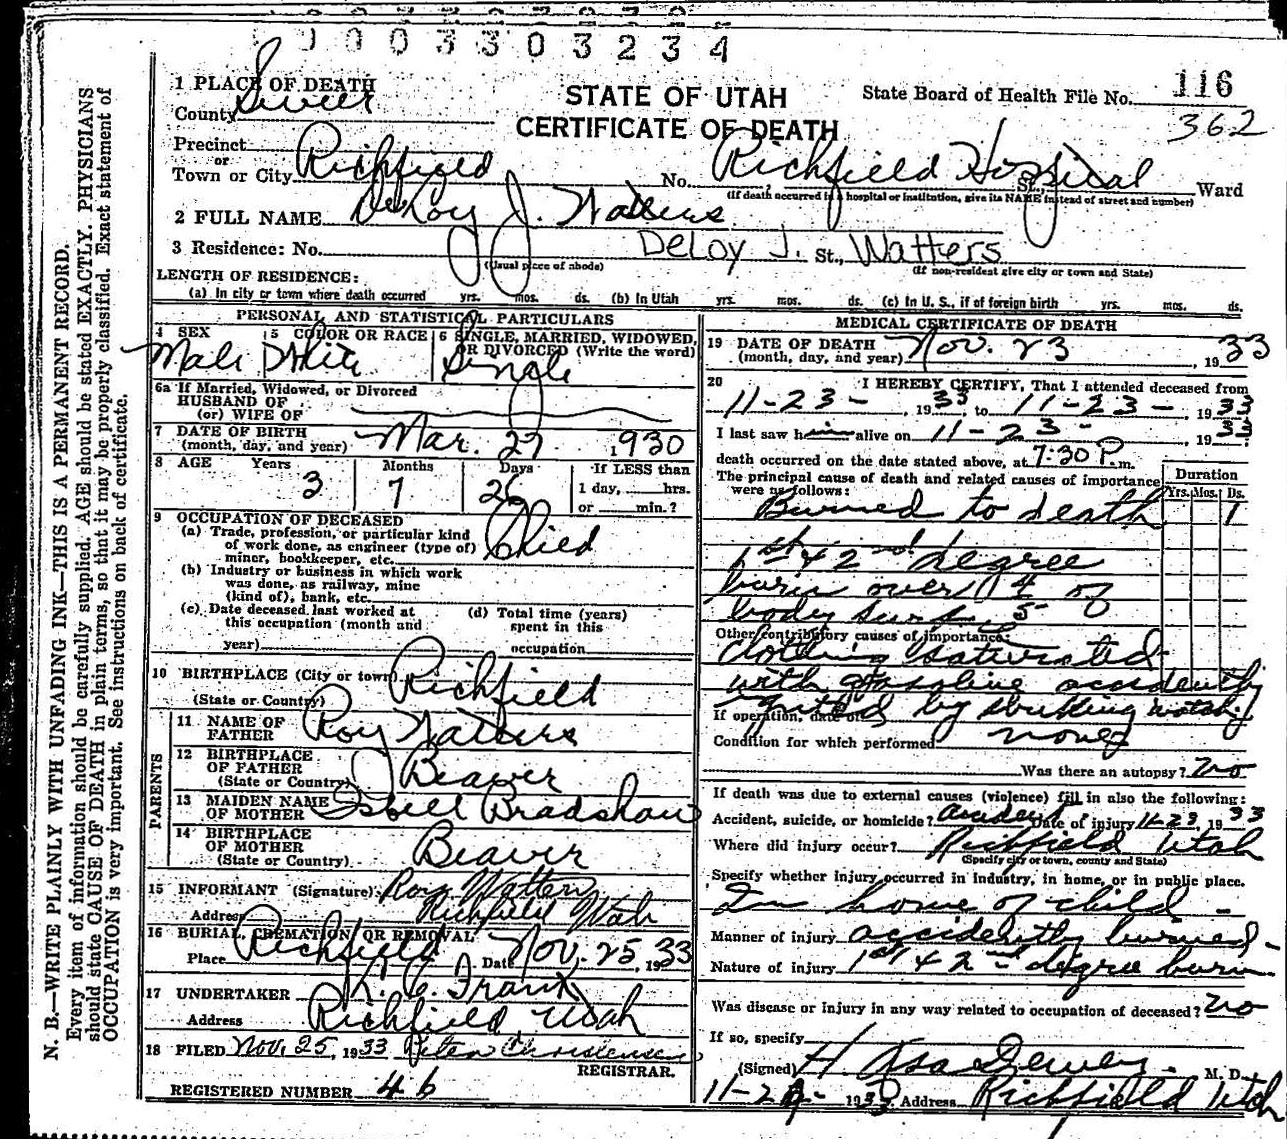 0003303234
1 PLACE OF DEATH
County Sevier
STATE OF UTAH
CERTIFICATE OF DEATH
State Board of Health File No. 116
362
Precinct
or
Town or City Richfield No. Richfield Hospital St., Ward
(If death occurred in a hospital or institution, give its NAME instead of street and number)
2 FULL NAME DeLoy J. Watters
3 Residence: No. DeLoy J. St., Watters
(Usual place of abode) (If non-resident give city or town and State)
LENGTH OF RESIDENCE:
(a) In city or town where death occurred yrs. mos. ds. (b) In Utah yrs. mos. ds. (c) In U. S., if of foreign birth yrs. mos. ds.
PERSONAL AND STATISTICAL PARTICULARS
4 SEX 5 COLOR OR RACE 6 SINGLE, MARRIED, WIDOWED,
OR DIVORCED (Write the word)
Male White Single
6a If Married, Widowed, or Divorced
HUSBAND OF
(or) WIFE OF
7 DATE OF BIRTH
(month, day, and year) Mar. 27 1930
8 AGE Years Months Days If LESS than
1 day, hrs.
or min.?
3 7 26
9 OCCUPATION OF DECEASED
(a) Trade, profession, or particular kind
of work done, as engineer (type of)
miner, bookkeeper, etc. Child
(b) Industry or business in which work
was done, as railway, mine
(kind of), bank, etc.
(c) Date deceased last worked at
this occupation (month and
year)
(d) Total time (years)
spent in this
occupation
10 BIRTHPLACE (City or town) Richfield
(State or Country)
PARENTS
11 NAME OF
FATHER Roy Watters
12 BIRTHPLACE
OF FATHER
(State or Country) Beaver
13 MAIDEN NAME
OF MOTHER Isbell Bradshaw
14 BIRTHPLACE
OF MOTHER
(State or Country) Beaver
15 INFORMANT (Signature) Roy Watters
Address Richfield Utah
16 BURIAL, CREMATION, OR REMOVAL
Place Richfield Date Nov. 25, 1933
17 UNDERTAKER
Address Richfield, Utah
18 FILED Nov. 25, 1933 Peter Christensen
REGISTRAR.
REGISTERED NUMBER 46
MEDICAL CERTIFICATE OF DEATH
19 DATE OF DEATH
(month, day, and year) Nov. 23, 1933
20 I HEREBY CERTIFY, That I attended deceased from
11-23-, 1933 to 11-23-, 1933
I last saw him alive on 11-23-, 1933
death occurred on the date stated above, at 7:30 P.m.
The principal cause of death and related causes of importance
were as follows:
Duration
Yrs. Mos. Ds.
Burned to death 1
1st & 2nd degree
burn over 4/5 of
body surf.
Other contributory causes of importance:
clothing saturated
with gasoline accidently
ignited by striking match
If operation, date of none
Condition for which performed
Was there an autopsy? no
If death was due to external causes (violence) fill in also the following:
Accident, suicide, or homicide? accident Date of injury 11-23, 1933
Where did injury occur? Richfield Utah
(Specify city or town, county and State)
Specify whether injury occurred in industry, in home, or in public place.
In home of child -
Manner of injury accidently burned -
Nature of injury 1st & 2nd degree burn
Was disease or injury in any way related to occupation of deceased? no
If so, specify
(Signed) H. Asa Dewey. M. D.
1933 Address Richfield Utah
N. B.—WRITE PLAINLY WITH UNFADING INK—THIS IS A PERMANENT RECORD.
Every item of information should be carefully supplied. AGE should be stated EXACTLY. PHYSICIANS
should state CAUSE OF DEATH in plain terms, so that it may be properly classified. Exact statement of
OCCUPATION is very important. See instructions on back of certificate.